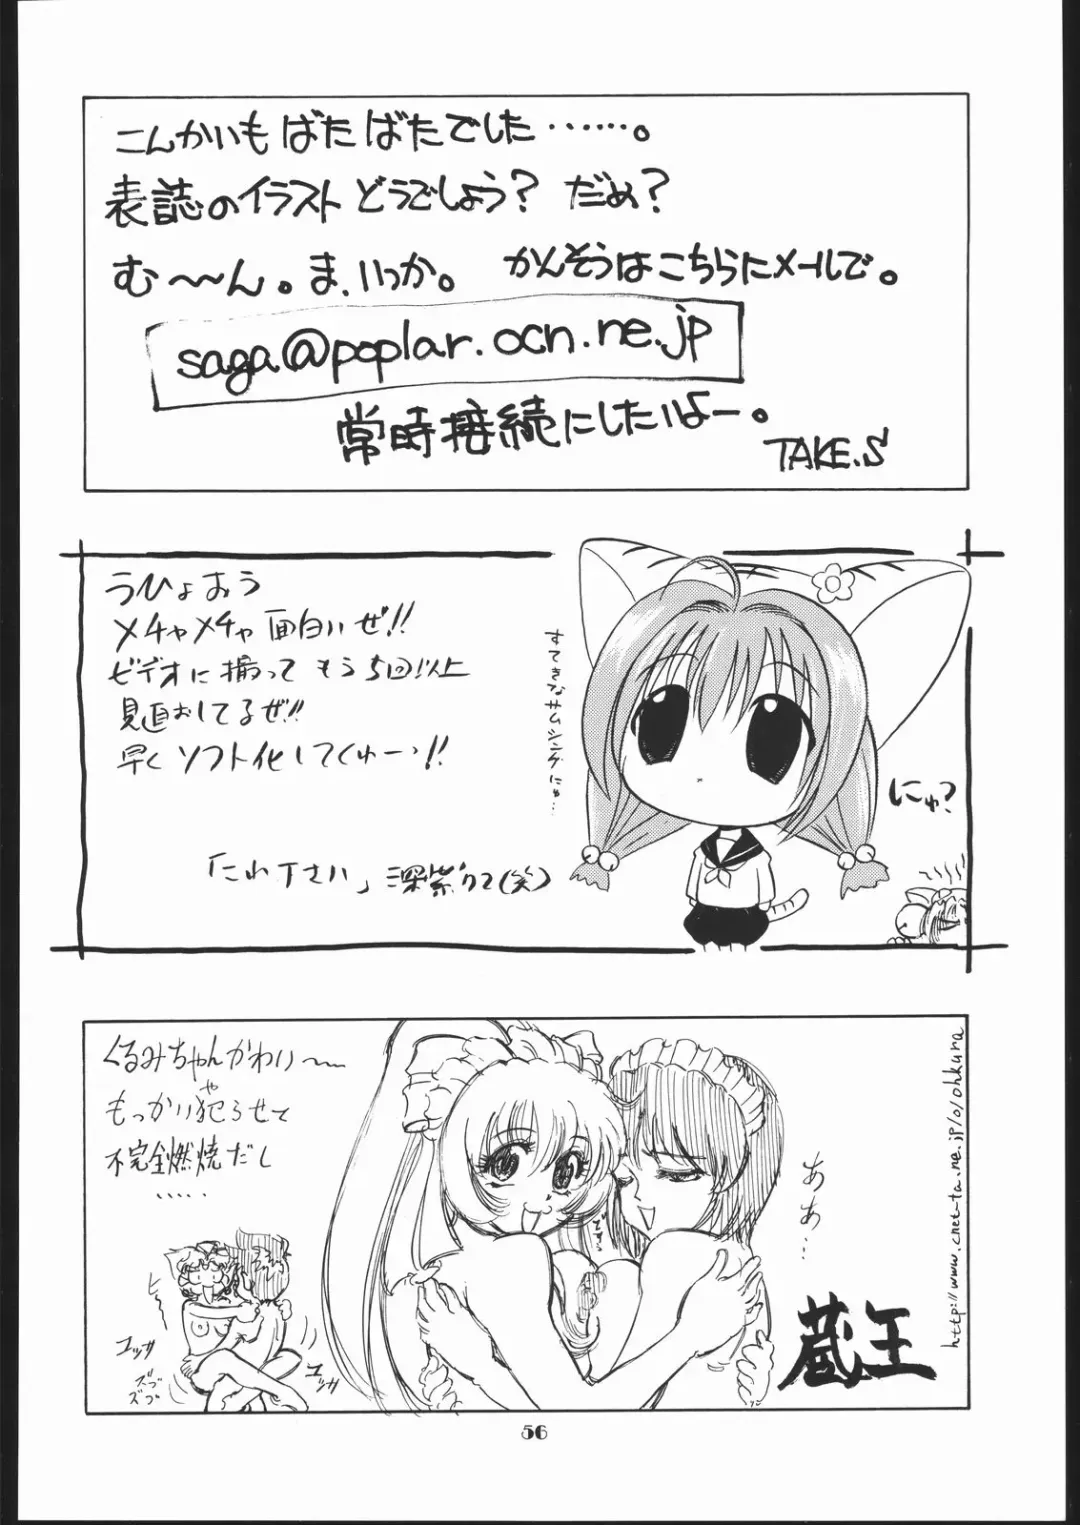 こんかいもばたばたでした……。
表誌のイラストどうでしょう？だめ？
む〜〜ん。ま、いっか。かんそうはこちらにメールで。
saga@poplar.ocn.ne.jp
常時接続にしたいよー。
TAKE.S
うひょおう
メチャメチャ面白いぜ!!
ビデオに揃ってもう5回以上
見直おしてるぜ!!
早くソフト化してくりゅーっ!!
すてきなサムシングにゅ…
にゅ？
くるみちゃんかわい〜〜
もっかい犯らせて
や
不完全燃焼だし
……
ああ…
蔵王
http://www.cnet-ta.ne.jp/o/ohkura
ユッサ
ズブ
ズブ
ユッサ
56